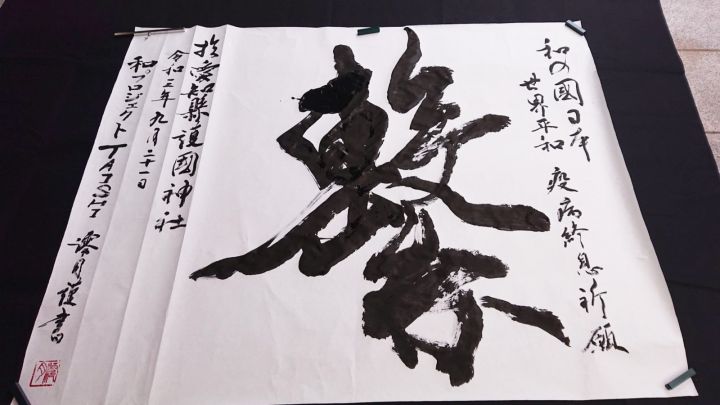 和の國日本
世界平和 疫病終息祈願
繋
於愛知縣護國神社
令和三年九月二十一日
和プロジェクトTAISHI 澪月謹書